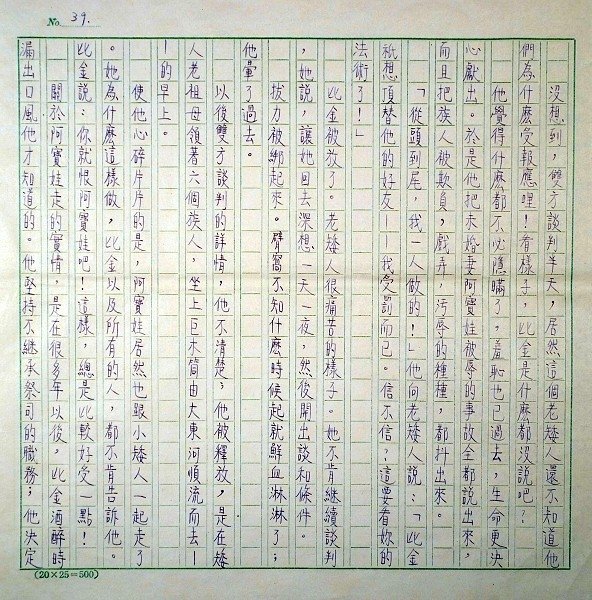 No. 39.
沒想到，雙方談判半天，居然這個老矮人還不知道他
們為什麼受報應哩！看樣子，比金是什麼都沒說吧？
他覺得什麼都不必隱瞞了，羞恥也已過去，生命更決
心獻出。於是他把未婚妻阿寶娃被辱的事故全都說出來，
而且把族人被欺負，戲弄，污辱的種種，都抖出來。
「從頭到尾，我一人做的！」他向老矮人說：「比金
祇想頂替他的好友—我受罰而已。信不信？這要看妳的
法術了！」
比金被放了。老矮人很痛苦的樣子。她不肯繼續談判
，她說，讓她回去深想一天一夜，然後開出談和條件。
拔力被綁起來。臂窩不知什麼時候起就鮮血淋淋了；
他暈了過去。
以後雙方談判的詳情，他不清楚；他被釋放，是在矮
人老祖母領著六個族人，坐上巨木筒由大東河順流而去—
—的早上。
使他心碎片片的是，阿寶娃居然也跟小矮人一起走了
。她為什麼這樣做，比金以及所有的人，都不肯告訴他。
比金說：你就恨阿寶娃吧！這樣，總是比較好受一點！
關於阿寶娃走的實情，是在很多年以後，比金酒醉時
漏出口風他才知道的。他堅持不繼承祭司的職務；他決定
(20×25=500)